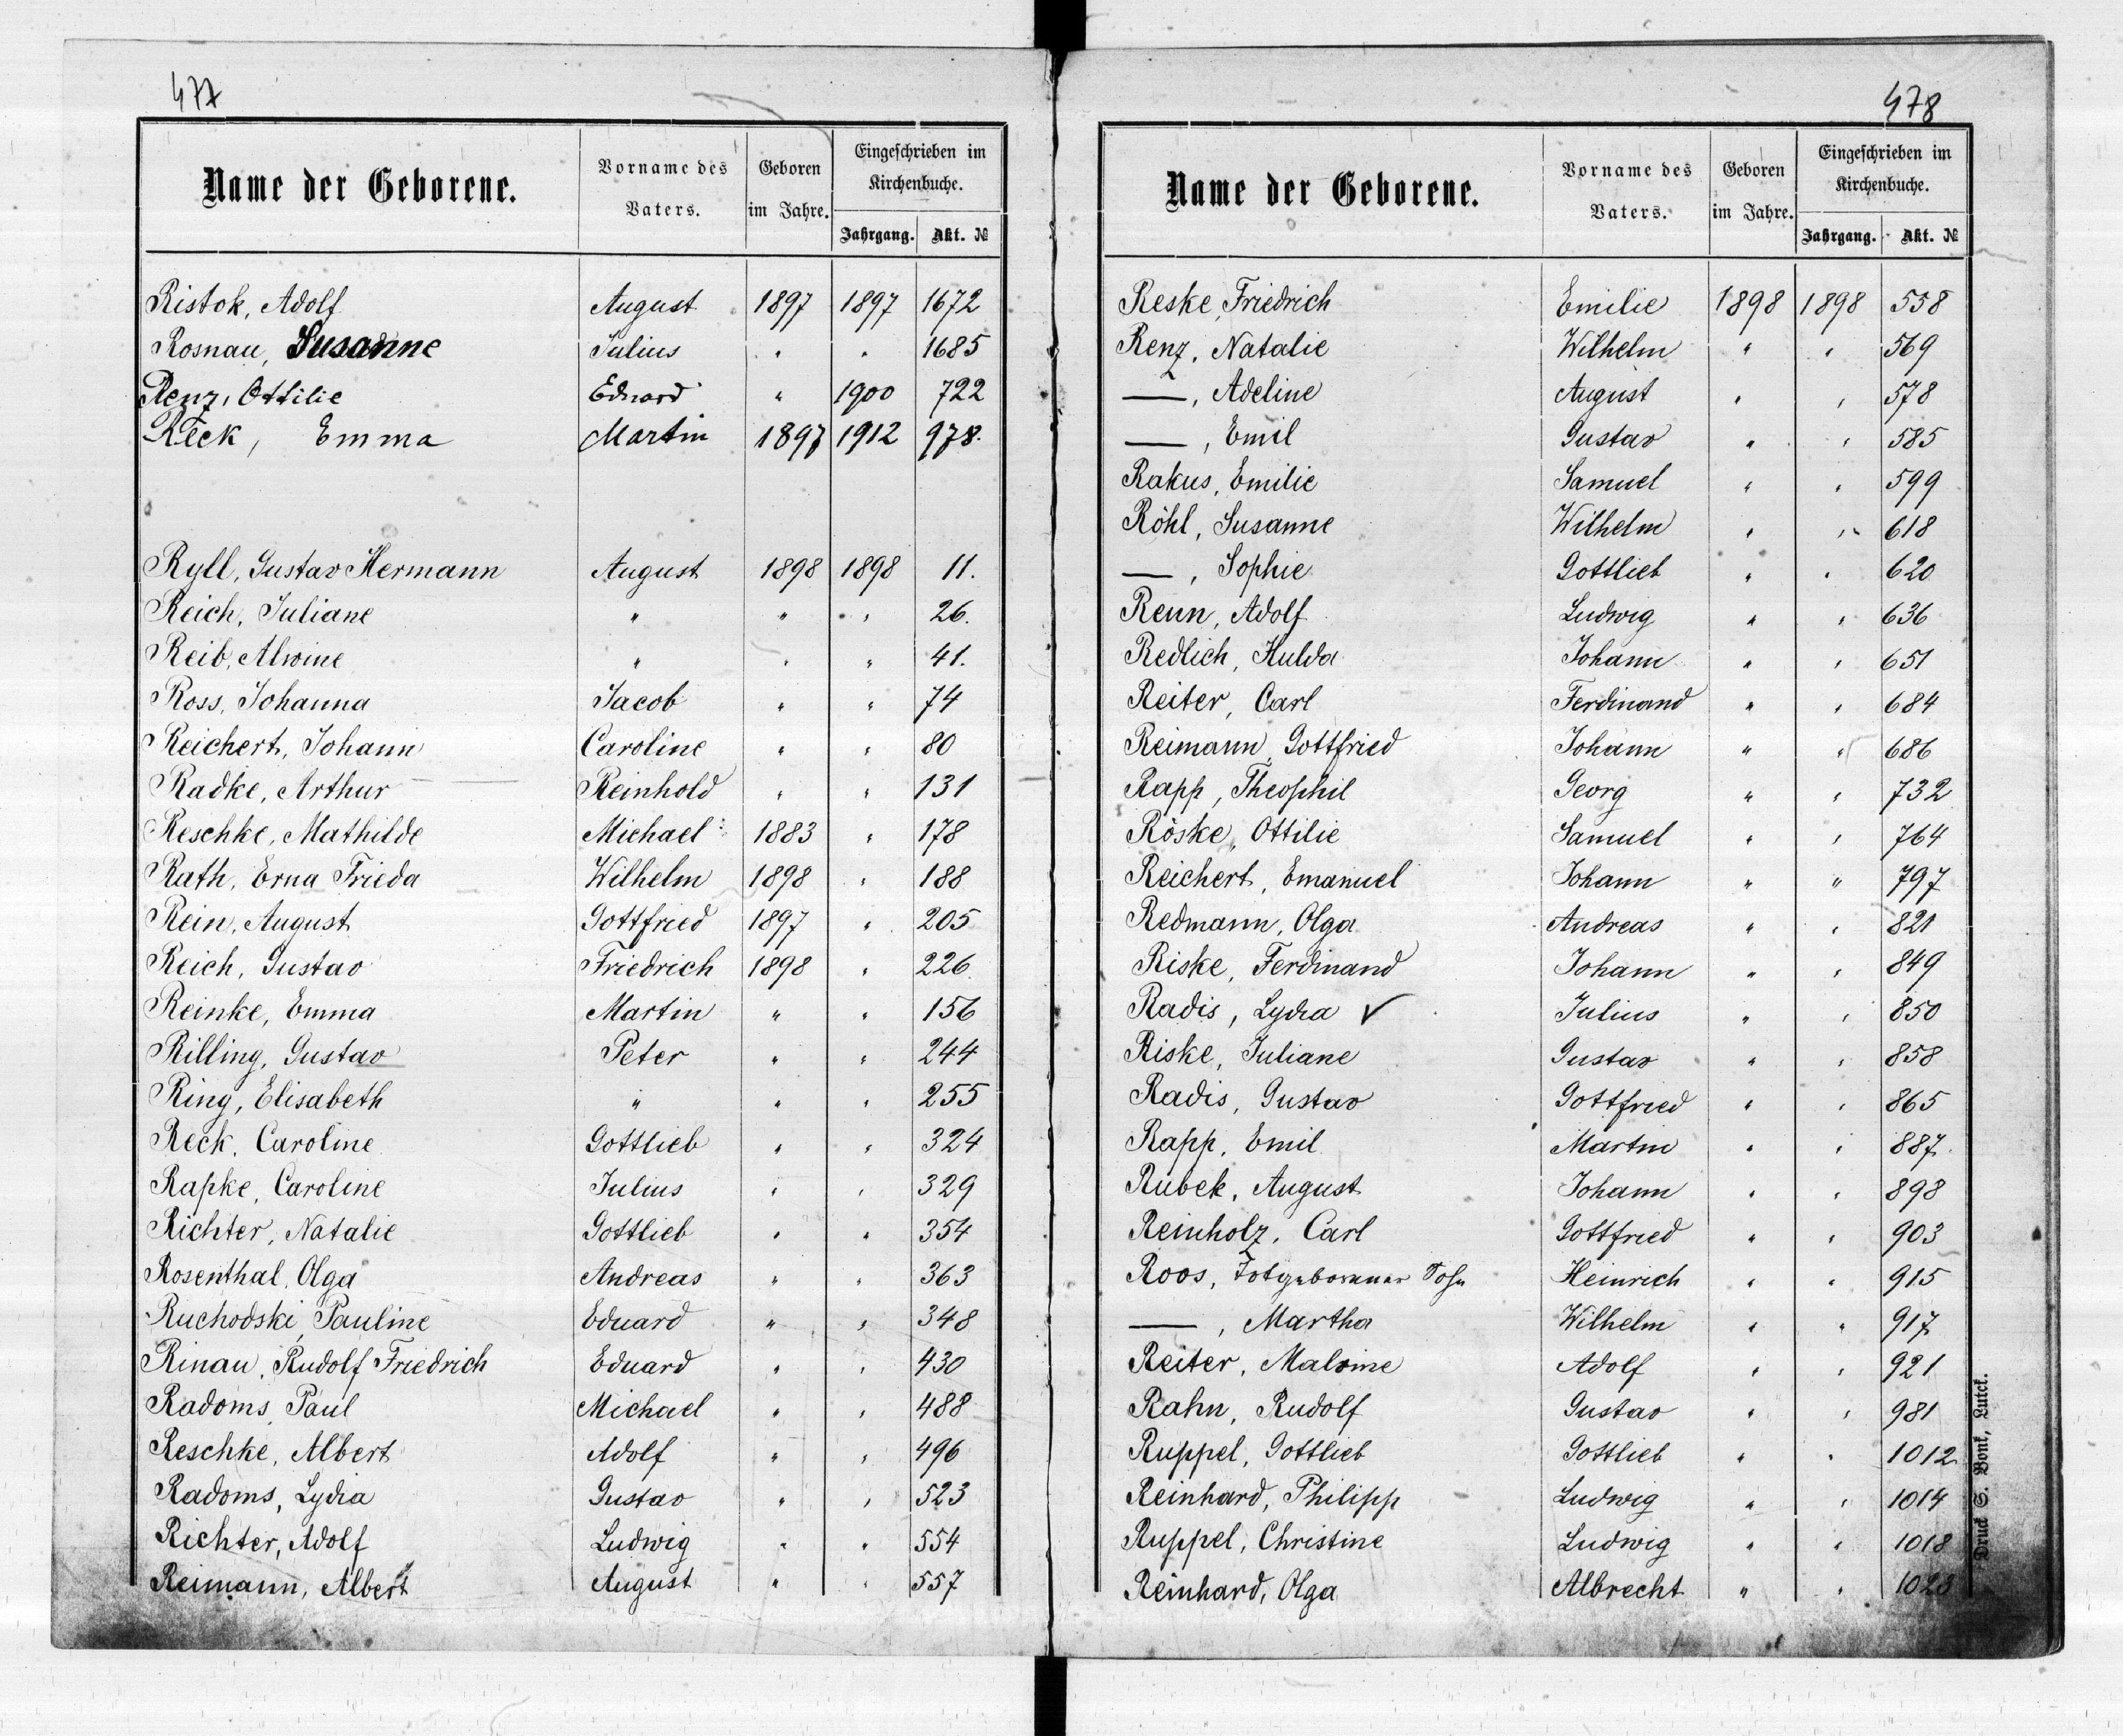 477
Name der Geborene. Vorname des Vaters. Geboren im Jahre. Eingeschrieben im Kirchenbuche. Jahrgang. Akt. №
Ristok, Adolf August 1897 1897 1672
Rosnau, Susanne Julius " " 1685
Renz, Ottilie Eduard " 1900 722
Reck, Emma Martin 1897 1912 978.
Ryll, Gustav Hermann August 1898 1898 11.
Reich, Juliane " " " 26.
Reib, Alwine " " " 41.
Ross, Johanna Jacob " " 74
Reichert, Johann Caroline " " 80
Radke, Arthur Reinhold " " 131
Reschke, Mathilde Michael 1883 " 178
Rath, Erna Frieda Wilhelm 1898 " 188
Rein, August Gottfried 1897 " 205
Reich, Gustav Friedrich 1898 " 226
Reinke, Emma Martin " " 156
Rilling, Gustav Peter " " 244
Ring, Elisabeth " " " 255
Reck, Caroline Gottlieb " " 324
Rapke, Caroline Julius " " 329
Richter, Natalie Gottlieb " " 354
Rosenthal, Olga Andreas " " 363
Ruchodski, Pauline Eduard " " 348
Rinau, Rudolf Friedrich Eduard " " 430
Radoms, Paul Michael " " 488
Reschke, Albert Adolf " " 496
Radoms, Lydia Gustav " " 523
Richter, Adolf Ludwig " " 554
Reimann, Albert August " " 557
478
Name der Geborene. Vorname des Vaters. Geboren im Jahre. Eingeschrieben im Kirchenbuche. Jahrgang. Akt. №
Reske, Friedrich Emilie 1898 1898 558
Renz, Natalie Wilhelm " " 569
—, Adeline August " " 578
—, Emil Gustav " " 585
Rakus, Emilie Samuel " " 599
Röhl, Susanne Wilhelm " " 618
—, Sophie Gottlieb " " 620
Renn, Adolf Ludwig " " 636
Redlich, Hulda Johann " " 651
Reiter, Carl Ferdinand " " 684
Reimann, Gottfried Johann " " 686
Rapp, Theophil Georg " " 732
Röske, Ottilie Samuel " " 764
Reichert, Emanuel Johann " " 797
Redmann, Olga Andreas " " 821
Riske, Ferdinand Johann " " 849
Radis, Lydia ✓ Julius " " 850
Riske, Juliane Gustav " " 858
Radis, Gustav Gottfried " " 865
Rapp, Emil Martin " " 887
Rubek, August Johann " " 898
Reinholz, Carl Gottfried " " 903
Roos, Totgeborener Sohn Heinrich " " 915
—, Martha Wilhelm " " 917
Reiter, Malvine Adolf " " 921
Rahn, Rudolf Gustav " " 981
Ruppel, Gottlieb Gottlieb " " 1012
Reinhard, Philipp Ludwig " " 1014
Ruppel, Christine Ludwig " " 1018
Reinhard, Olga Albrecht " " 1023
Druck S. Bonk, Lutck.